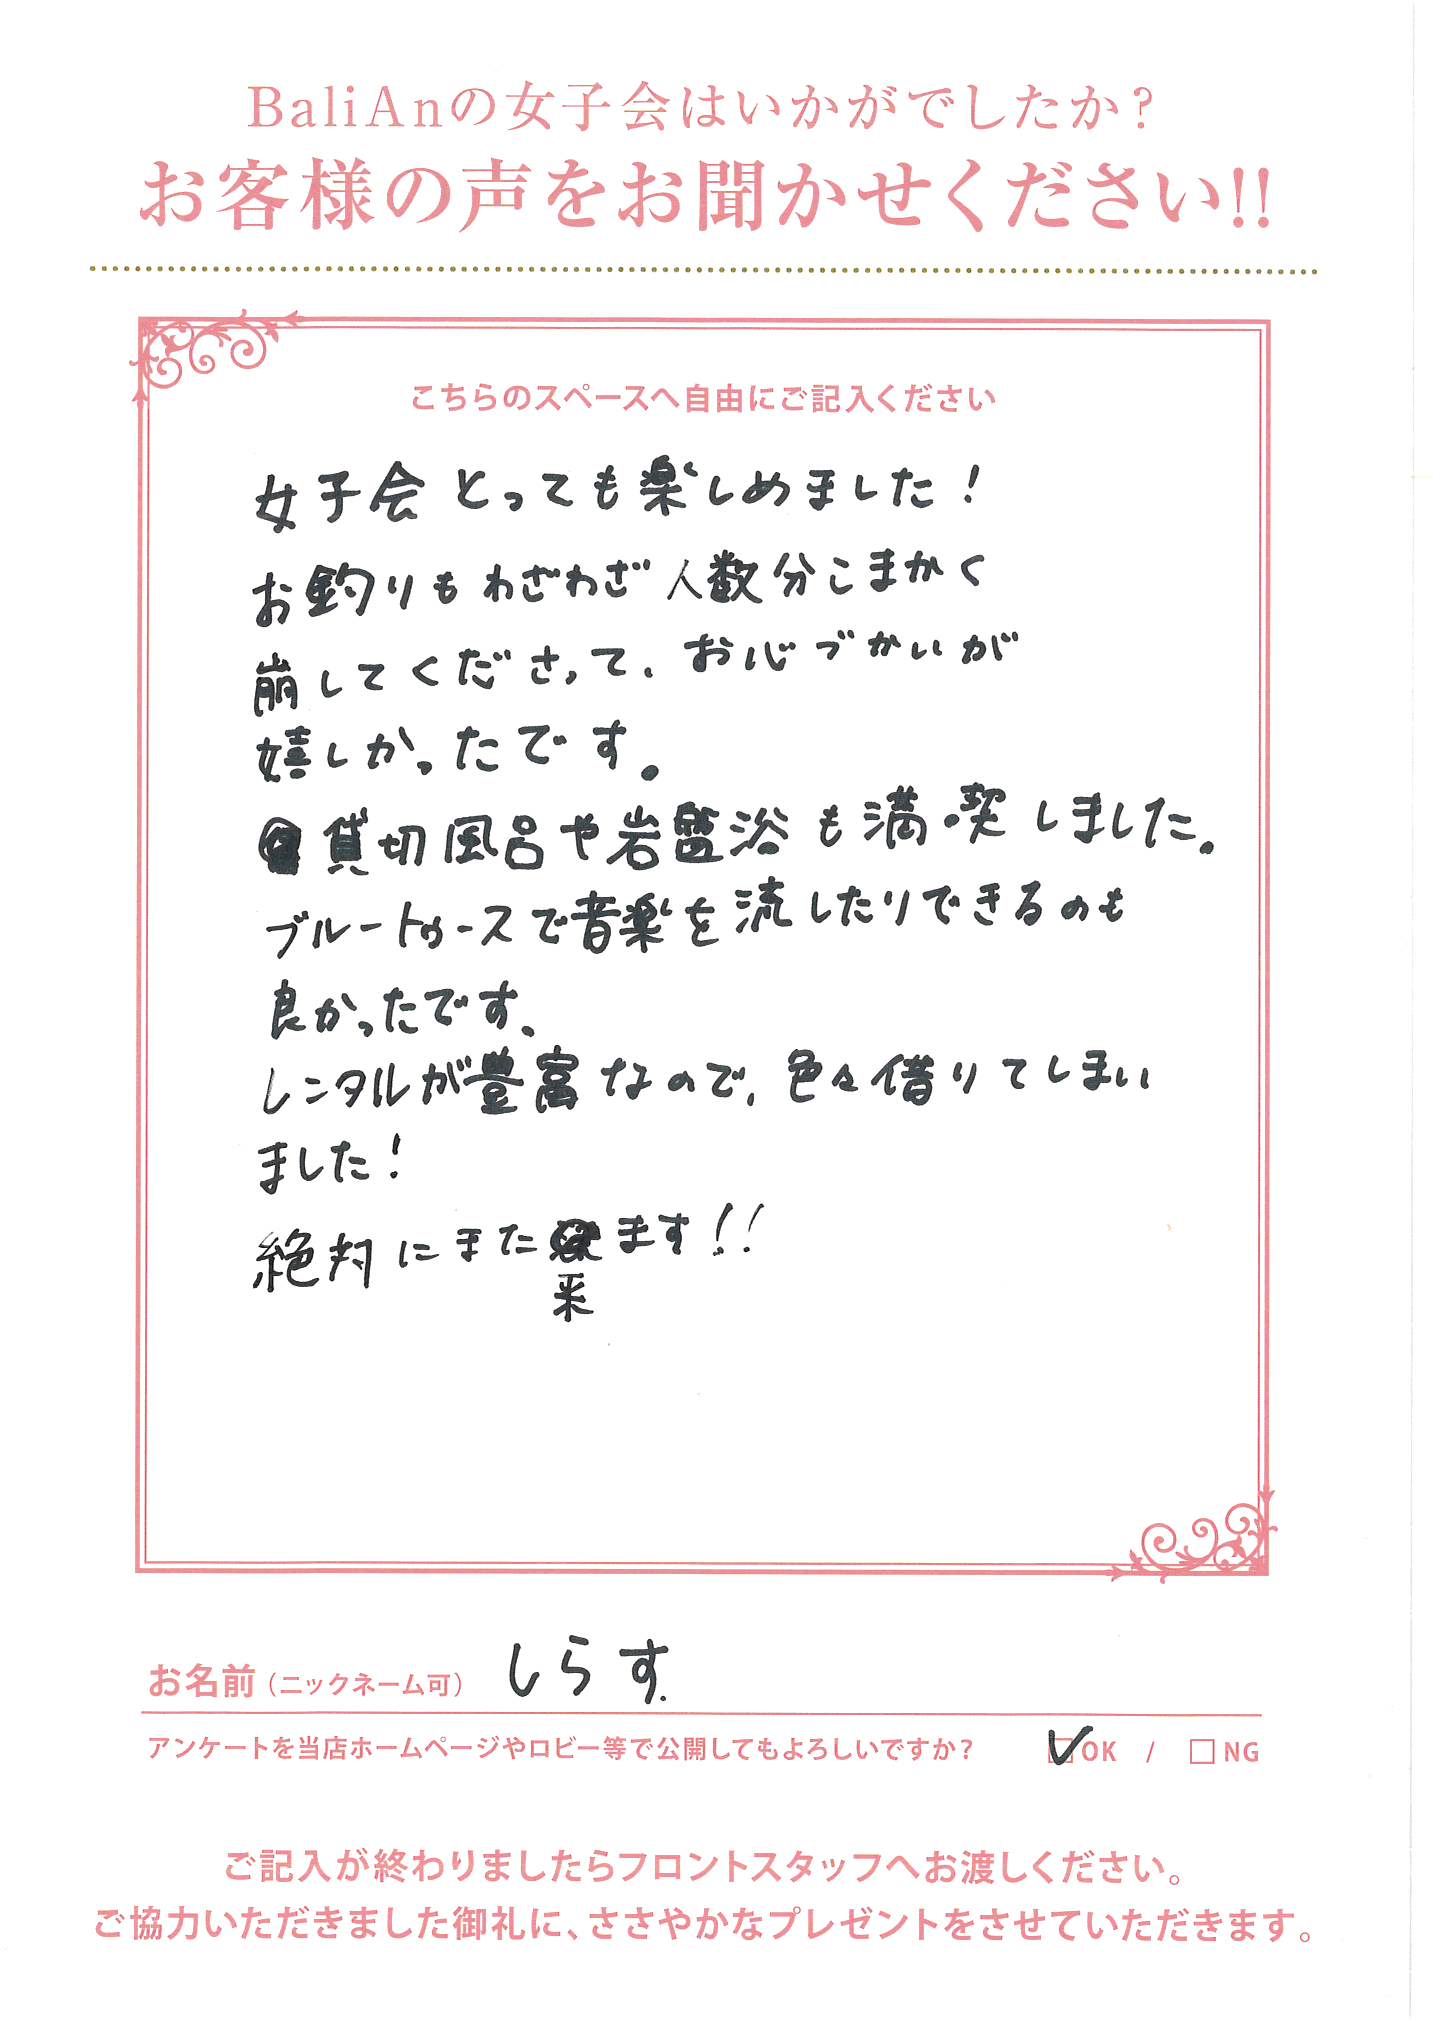 BaliAnの女子会はいかがでしたか？
お客様の声をお聞かせください!!
こちらのスペースへ自由にご記入ください
女子会とっても楽しめました！
お釣りもわざわざ人数分こまかく
崩してくださって、お心づかいが
嬉しかったです。
貸切風呂や岩盤浴も満喫しました。
ブルートゥースで音楽を流したりできるのも
良かったです、
レンタルが豊富なので、色々借りてしまい
ました！
絶対にまた来ます！！
お名前（ニックネーム可） しらす.
アンケートを当店ホームページやロビー等で公開してもよろしいですか？ ☑OK / □NG
ご記入が終わりましたらフロントスタッフへお渡しください。
ご協力いただきました御礼に、ささやかなプレゼントをさせていただきます。